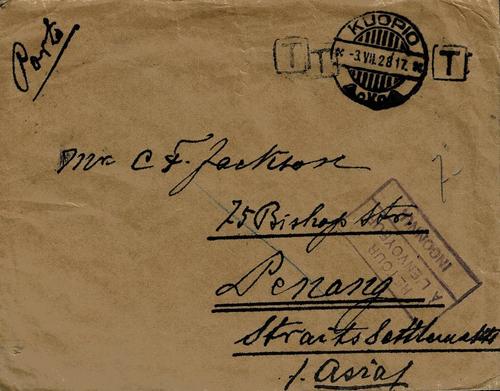 Porto
T T T
KUOPIO
-3.VII.28 17.
Mr C F. Jackson
75 Bishop Str.
Penang
Straits Settlements
/. Asia/
RETOUR
A L'ENVOYEUR
INCONNU